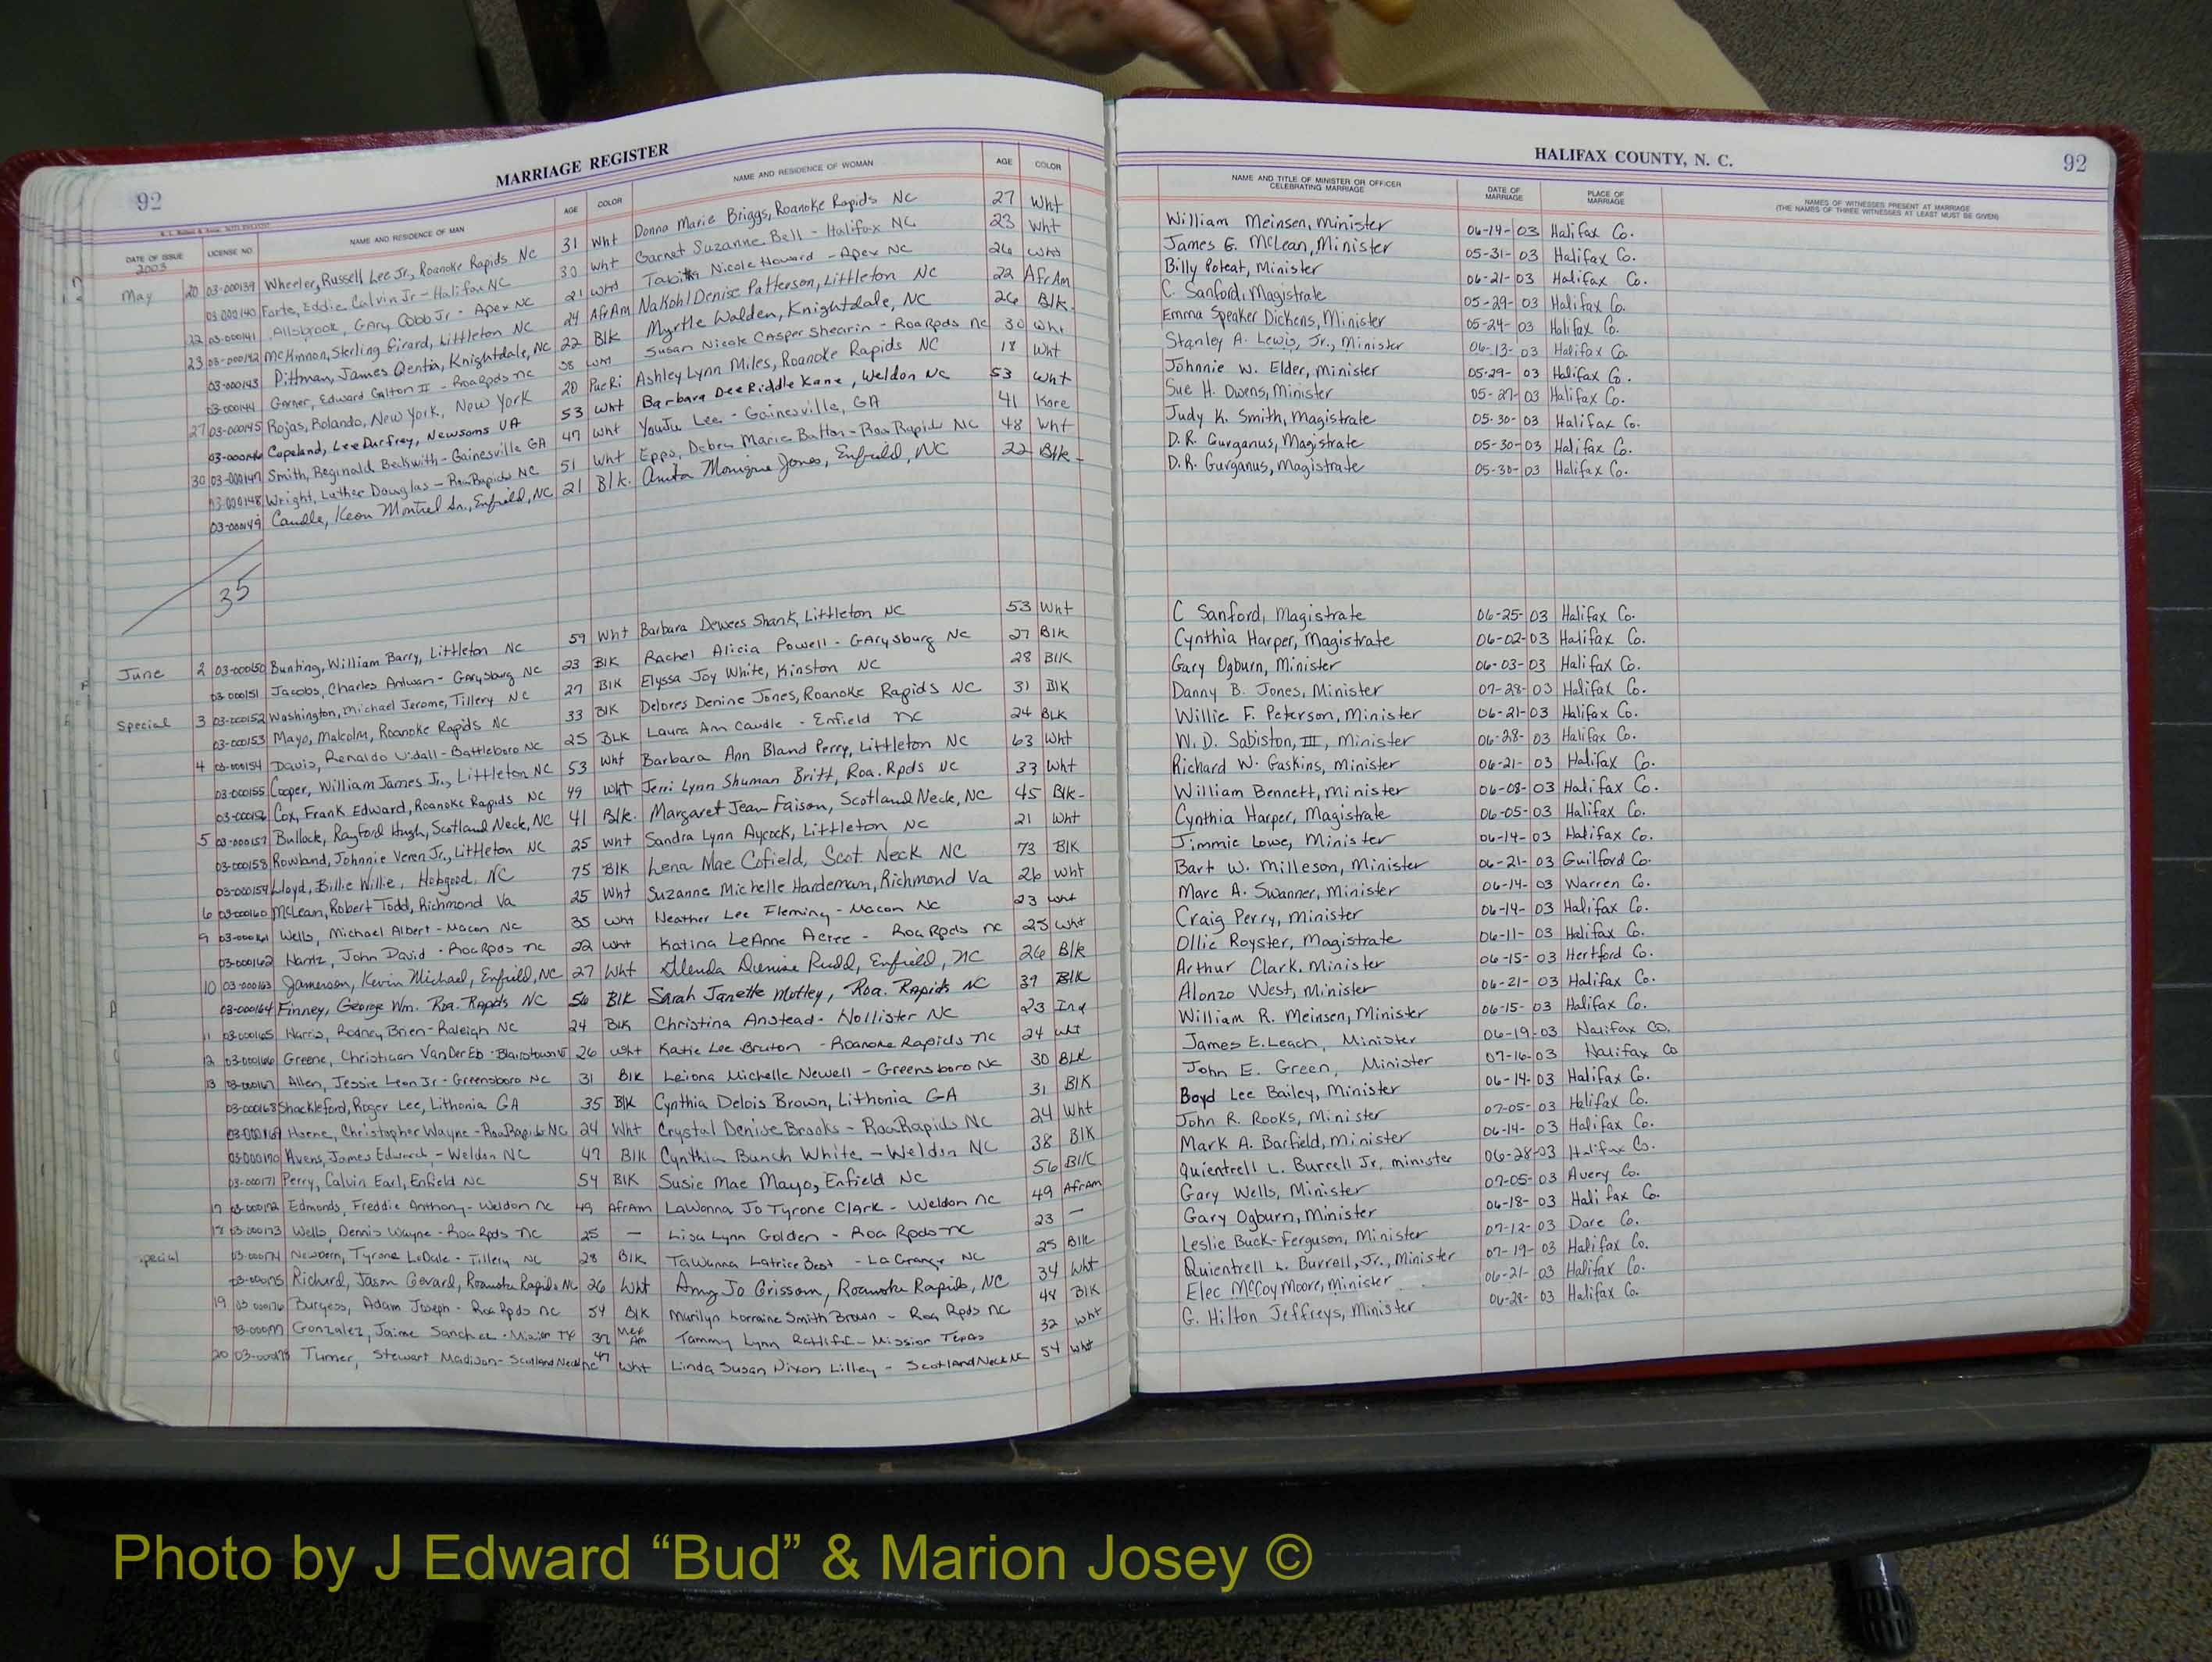 92
MARRIAGE REGISTER
DATE OF ISSUE 2003 LICENSE NO. NAME AND RESIDENCE OF MAN AGE COLOR NAME AND RESIDENCE OF WOMAN AGE COLOR
May 20 03-000139 Wheeler, Russell Lee Jr, Roanoke Rapids NC 31 Wht Donna Marie Briggs, Roanoke Rapids NC 27 Wht
03-000140 Forte, Eddie Calvin Jr - Halifax NC 30 Wht Garnet Suzanne Bell - Halifax NC 23 Wht
22 03-000141 Allsbrook, Gary Cobb Jr - Apex NC 21 Wht Tabitha Nicole Howard - Apex NC 26 Wht
23 03-000142 McKinnon, Sterling Girard, Littleton NC 24 AfrAm Nakohl Denise Patterson, Littleton NC 22 AfrAm
03-000143 Pittman, James Qentin, Knightdale, NC 22 Blk Myrtle Walden, Knightdale, NC 26 Blk.
03-000144 Garner, Edward Galton II - Roa Rpds NC 38 Wht Susan Nicole Casper Shearin - Roa Rpds NC 30 Wht
27 03-000145 Rojas, Rolando, New York, New York 20 PueRi Ashley Lynn Miles, Roanoke Rapids NC 18 Wht
03-000146 Copeland, Lee Durfrey, Newsoms VA 53 Wht Barbara Dee Riddle Kane, Weldon NC 53 Wht
30 03-000147 Smith, Reginald Beckwith - Gainesville GA 47 Wht YouJu Lee - Gainesville, GA 41 Kore
03-000148 Wright, Luther Douglas - Roa Rapids NC 51 Wht Epps, Debra Marie Batton - Roa Rapids NC 48 Wht
03-000149 Caudle, Keon Montrel Sr., Enfield, NC 21 Blk. Anita Monique Jones, Enfield, NC 22 Blk-
35
June 2 03-000150 Bunting, William Barry, Littleton NC 59 Wht Barbara Dewees Shank, Littleton NC 53 Wht
03-000151 Jacobs, Charles Antwan - Garysburg NC 23 Blk Rachel Alicia Powell - Garysburg NC 27 Blk
Special 3 03-000152 Washington, Michael Jerome, Tillery NC 27 Blk Elyssa Joy White, Kinston NC 28 Blk
03-000153 Mayo, Malcolm, Roanoke Rapids NC 33 Blk Delores Denine Jones, Roanoke Rapids NC 31 Blk
4 03-000154 Davis, Renaldo Udall - Battleboro NC 25 Blk Laura Ann Caudle - Enfield NC 24 Blk
03-000155 Cooper, William James Jr., Littleton NC 53 Wht Barbara Ann Bland Perry, Littleton NC 63 Wht
03-000156 Cox, Frank Edward, Roanoke Rapids NC 49 Wht Jerri Lynn Shuman Britt, Roa. Rpds NC 33 Wht
5 03-000157 Bullock, Rayford Hugh, Scotland Neck, NC 41 Blk. Margaret Jean Faison, Scotland Neck, NC 45 Blk-
03-000158 Rowland, Johnnie Veren Jr., Littleton NC 25 Wht Sandra Lynn Aycock, Littleton NC 21 Wht
03-000159 Lloyd, Billie Willie, Hobgood NC 75 Blk Lena Mae Cofield, Scot. Neck NC 73 Blk
6 03-000160 McLean, Robert Todd, Richmond Va 25 Wht Suzanne Michelle Hardeman, Richmond Va 26 Wht
9 03-000161 Wells, Michael Albert - Macon NC 35 Wht Heather Lee Fleming - Macon NC 23 Wht
03-000162 Hantz, John David - Roa Rpds NC 22 Wht Katina LeAnne Acree - Roa Rpds NC 25 Wht
10 03-000163 Jamerson, Kevin Michael, Enfield, NC 27 Wht Denise Rudd, Enfield, NC 26 Blk
03-000164 Finney, George Wm. Roa. Rapids NC 56 Blk Sarah Janette Motley, Roa. Rapids NC 39 Blk
11 03-000165 Harris, Rodney Brien - Raleigh NC 24 Blk Christina Anstead - Hollister NC 23 Ind
12 03-000166 Greene, Christiaan VanDerEb - Blairstown 26 Wht Katie Lee Bruton - Roanoke Rapids NC 24 Wht
13 03-000167 Allen, Jessie Leon Jr - Greensboro NC 31 Blk Leiona Michelle Newell - Greensboro NC 30 Blk
03-000168 Shackleford, Roger Lee, Lithonia GA 35 Blk Cynthia Delois Brown, Lithonia GA 31 Blk
03-000169 Horne, Christopher Wayne - Roa Rapids NC 24 Wht Crystal Denise Brooks - Roa Rapids NC 24 Wht
03-000170 Avens, James Edward, - Weldon NC 47 Blk Cynthia Bunch White - Weldon NC 38 Blk
03-000171 Perry, Calvin Earl, Enfield NC 54 Blk Susie Mae Mayo, Enfield NC 56 Blk
17 03-000172 Edmonds, Freddie Anthony - Weldon NC 49 AfrAm LaWonna Jo Tyrone Clark - Weldon NC 49 AfrAm
18 03-000173 Wells, Dennis Wayne - Roa Rpds NC 25 — Lisa Lynn Golden - Roa Rpds NC 23 —
Special 03-000174 Newborn, Tyrone LeDale - Tillery NC 28 Blk Tawanna Latrice Best - La Grange NC 25 Blk
03-000175 Richard, Jason Gerard, Roanoke Rapids NC 26 Wht Amy Jo Grissom, Roanoke Rapids, NC 34 Wht
19 03-000176 Burgess, Adam Joseph - Roa Rpds NC 54 Blk Marilyn Lorraine Smith Brown - Roa Rpds NC 48 Blk
03-000177 Gonzalez, Jaime Sanchez - Mission TX 37 Mex Am Tammy Lynn Ratliff - Mission Texas 32 Wht
20 03-000178 Turner, Stewart Madison - Scotland Neck NC 47 Wht Linda Susan Dixon Lilley - Scotland Neck NC 54 Wht
HALIFAX COUNTY, N. C.
92
NAME AND TITLE OF MINISTER OR OFFICER CELEBRATING MARRIAGE DATE OF MARRIAGE PLACE OF MARRIAGE NAMES OF WITNESSES PRESENT AT MARRIAGE (THE NAMES OF THREE WITNESSES AT LEAST MUST BE GIVEN)
William Meinsen, Minister 06-14-03 Halifax Co.
James E. McLean, Minister 05-31-03 Halifax Co.
Billy Poteat, Minister 06-21-03 Halifax Co.
C. Sanford, Magistrate 05-29-03 Halifax Co.
Emma Speaker Dickens, Minister 05-24-03 Halifax Co.
Stanley A. Lewis, Jr., Minister 06-13-03 Halifax Co.
Johnnie W. Elder, Minister 05-29-03 Halifax Co.
Sue H. Owens, Minister 05-27-03 Halifax Co.
Judy K. Smith, Magistrate 05-30-03 Halifax Co.
D.R. Gurganus, Magistrate 05-30-03 Halifax Co.
D.R. Gurganus, Magistrate 05-30-03 Halifax Co.
C Sanford, Magistrate 06-25-03 Halifax Co.
Cynthia Harper, Magistrate 06-02-03 Halifax Co.
Gary Ogburn, Minister 06-03-03 Halifax Co.
Danny B. Jones, Minister 07-28-03 Halifax Co.
Willie F. Peterson, Minister 06-21-03 Halifax Co.
W. D. Sabiston, III, Minister 06-28-03 Halifax Co.
Richard W. Gaskins, Minister 06-21-03 Halifax Co.
William Bennett, Minister 06-08-03 Halifax Co.
Cynthia Harper, Magistrate 06-05-03 Halifax Co.
Jimmie Lowe, Minister 06-14-03 Halifax Co.
Bart W. Milleson, Minister 06-21-03 Guilford Co.
Marc A. Swanner, Minister 06-14-03 Warren Co.
Craig Perry, Minister 06-14-03 Halifax Co.
Ollie Royster, Magistrate 06-11-03 Halifax Co.
Arthur Clark, Minister 06-15-03 Hertford Co.
Alonzo West, Minister 06-21-03 Halifax Co.
William R. Meinsen, Minister 06-15-03 Halifax Co.
James E. Leach, Minister 06-19-03 Halifax Co.
John E. Green, Minister 07-16-03 Halifax Co
Boyd Lee Bailey, Minister 06-14-03 Halifax Co.
John R. Rooks, Minister 07-05-03 Halifax Co.
Mark A. Barfield, Minister 06-14-03 Halifax Co.
Quientrell L. Burrell Jr, Minister 06-28-03 Halifax Co.
Gary Wells, Minister 07-05-03 Avery Co.
Gary Ogburn, Minister 06-18-03 Halifax Co.
Leslie Buck-Ferguson, Minister 07-12-03 Dare Co.
Quientrell L. Burrell, Jr., Minister 07-19-03 Halifax Co.
Elec McCoy Moore, Minister 06-21-03 Halifax Co.
G. Hilton Jeffreys, Minister 06-28-03 Halifax Co.
Photo by J Edward “Bud” & Marion Josey ©